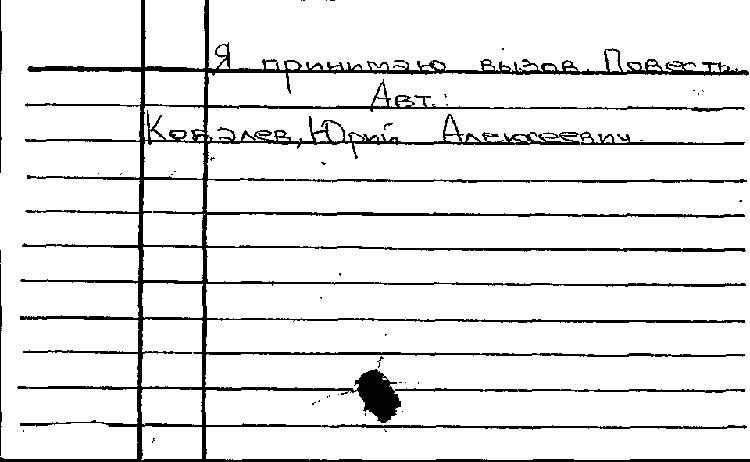 Я принимаю вызов. Повесть.
Авт.:
Ковалев, Юрий Алексеевич